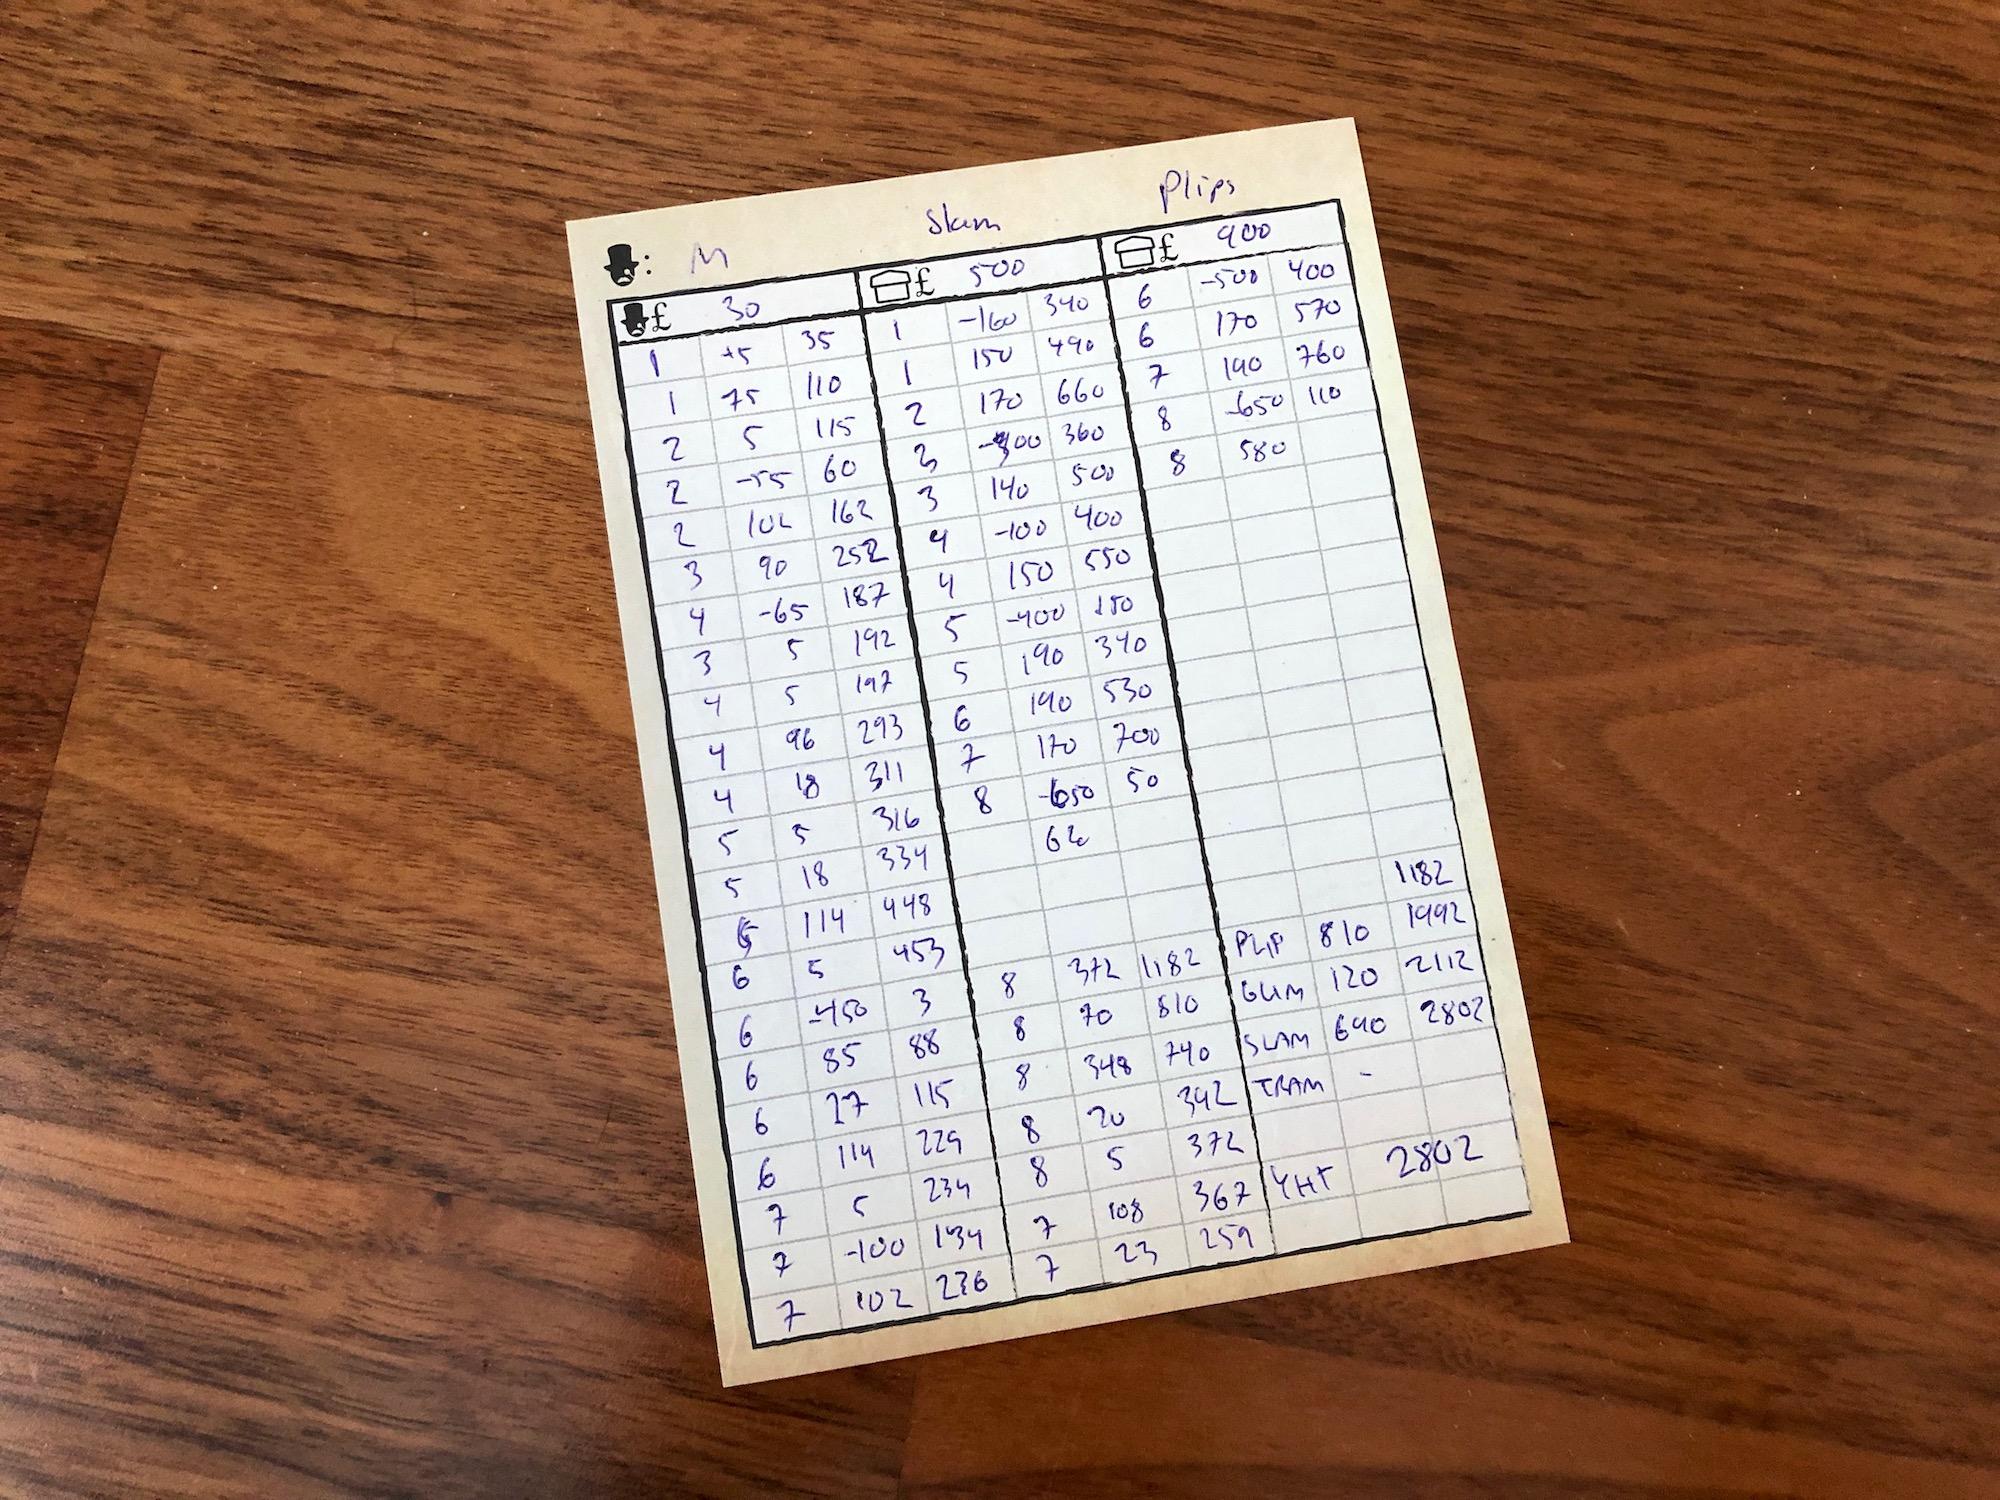 : M Slam Plips
£ 30 £ 500 £ 900
1 +5 35 1 -160 340 6 -500 400
1 75 110 1 150 490 6 170 570
2 5 115 2 170 660 7 190 760
2 -55 60 3 360 8 -650 110
2 102 162 3 140 500 8 580
3 90 252 4 -100 400
4 -65 187 4 150 550
3 5 192 5 -400 150
4 5 197 5 190 340
4 96 293 6 190 530
4 18 311 7 170 700
5 5 316 8 -650 50
5 18 334
114 448 1182
6 5 453 8 372 1182 PLIP 810 1992
6 -450 3 8 70 810 GUM 120 2112
6 85 88 8 348 740 SLAM 690 2802
6 27 115 8 20 392 TRAM -
6 114 229 8 5 372
7 5 234 7 108 367 YHT 2802
7 -100 134 7 23 259
7 102 236